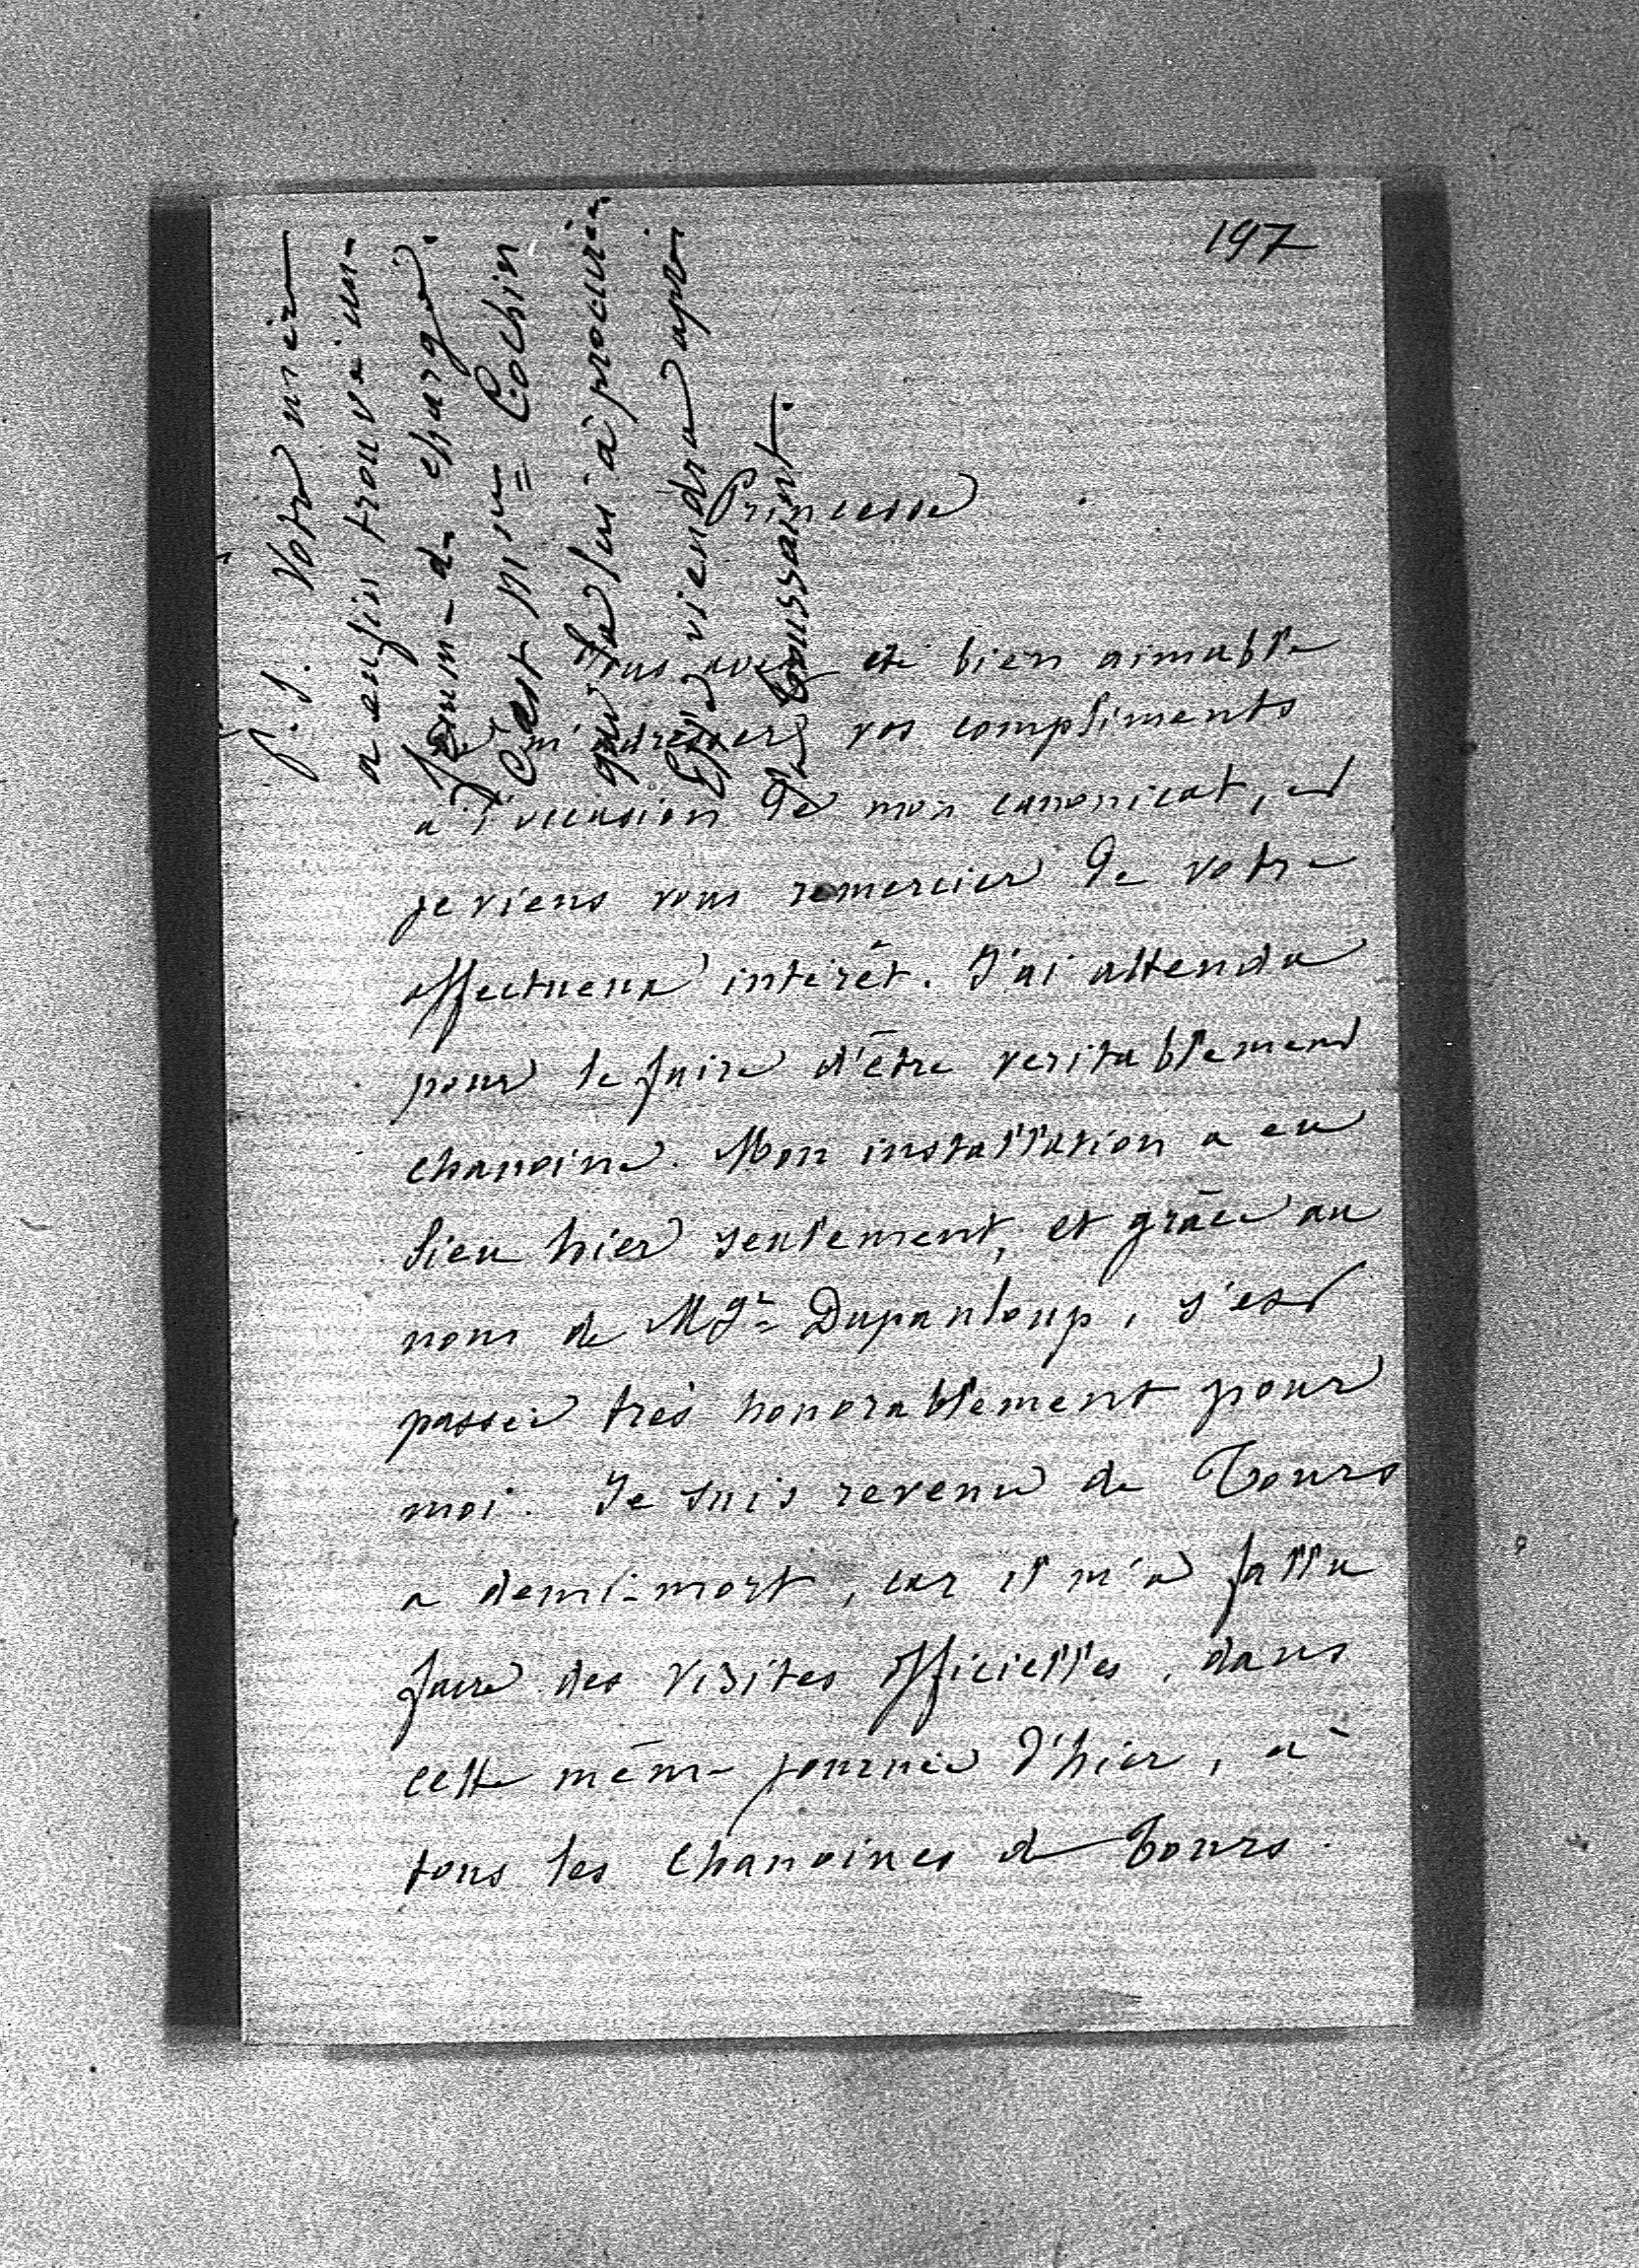 197
Princesse
Vous avez été bien aimable
de m'adresser vos compliments
à l'occasion de mon canonicat, et
je viens vous remercier de votre
affectueux intérêt. J'ai attendu
pour le faire d'être veritablement
chanoine. Mon installation a eu
lieu hier seulement, et grâce au
nom de Mgr Dupanloup, s'est
passée très honorablement pour
moi. Je suis revenu de Tours
a demi-mort, car il m'a fallu
faire des visites officielles, dans
cette même journée d'hier, à
tous les chanoines de Tours.
P.S. Votre mère
a enfin trouvé une
femme de charge.
C'est Mme Cochin
qui la lui a procurée.
Elle viendra après
la Toussaint.